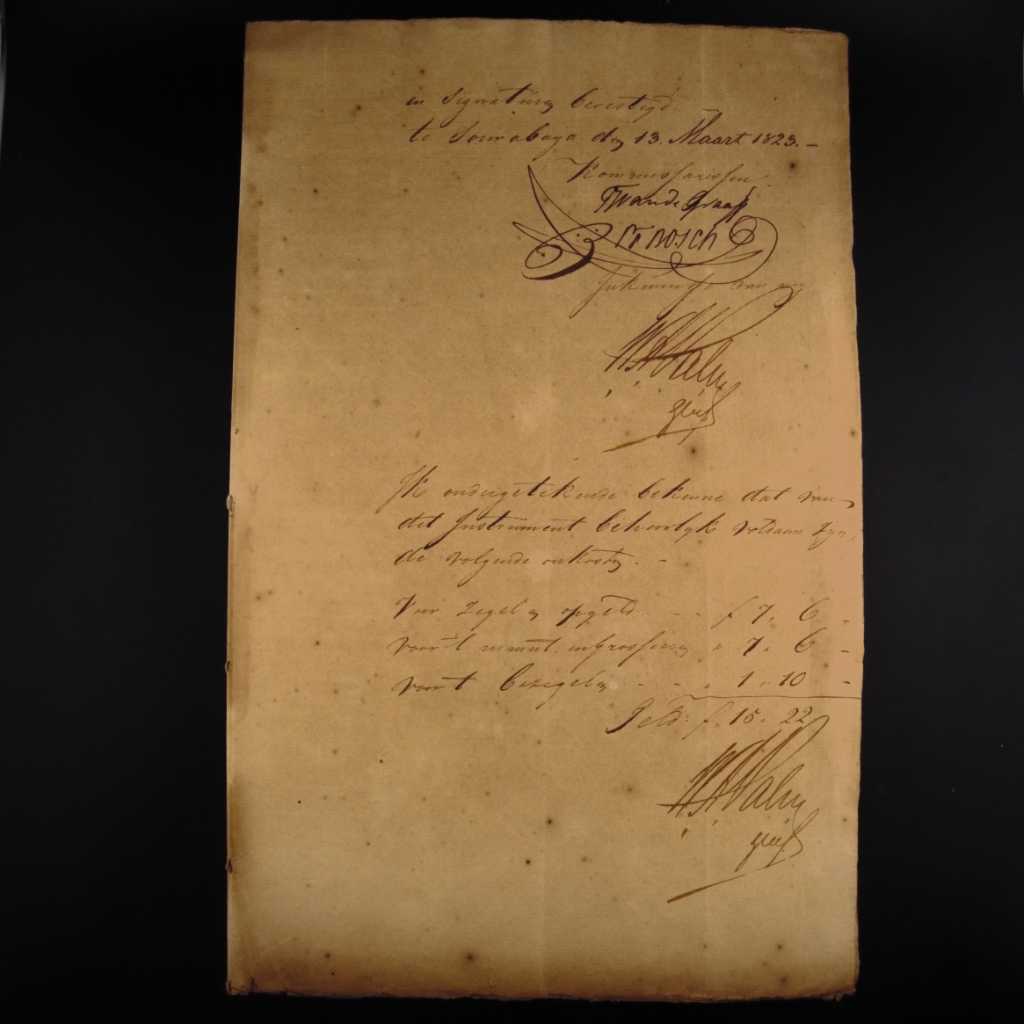 en Signature bevestigd
te Sourabaya den 13. Maart 1823. -
Kommissarissen
van de Graaff
Bosch
van my
Palm
grif
Ik ondergetekende bekenne dat van
dit Instrument behoorlyk voldaan zyn
de volgende onkosten. -
Voor zegel en opgeld - - f 7. 6 -
voor 't minut. ingrosseren " 7. 6 -
voor 't bezegelen - - " 1. 10 -
Zeld: f. 15. 22
Palm
grif